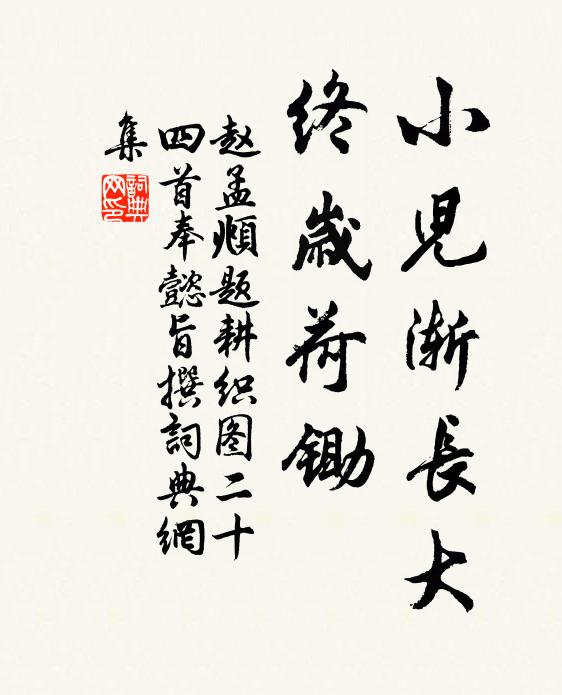 小児渐長大
终歳荷锄
赵孟頫题耕织图二十
四首奉懿旨撰詞典網
集
詞典網印